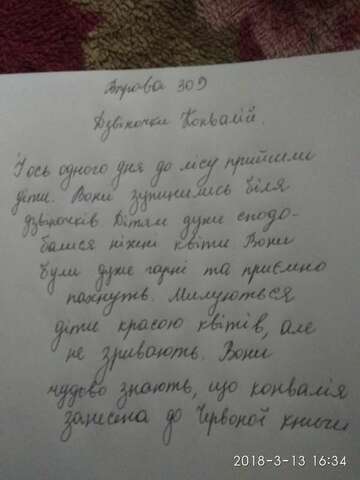 Вправа 309
Дзвіночки Конвалій.
І ось одного дня до лісу прийшли
діти. Вони зупинились біля
дзвіночків Дітям дуже сподо-
балися ніжні квіти Вони
були дуже гарні та приємно
пахнуть. Милуються
діти красою квітів, але
не зривають. Вони
чудово знають, що конвалія
занесена до Червоної книги
2018-3-13 16:34